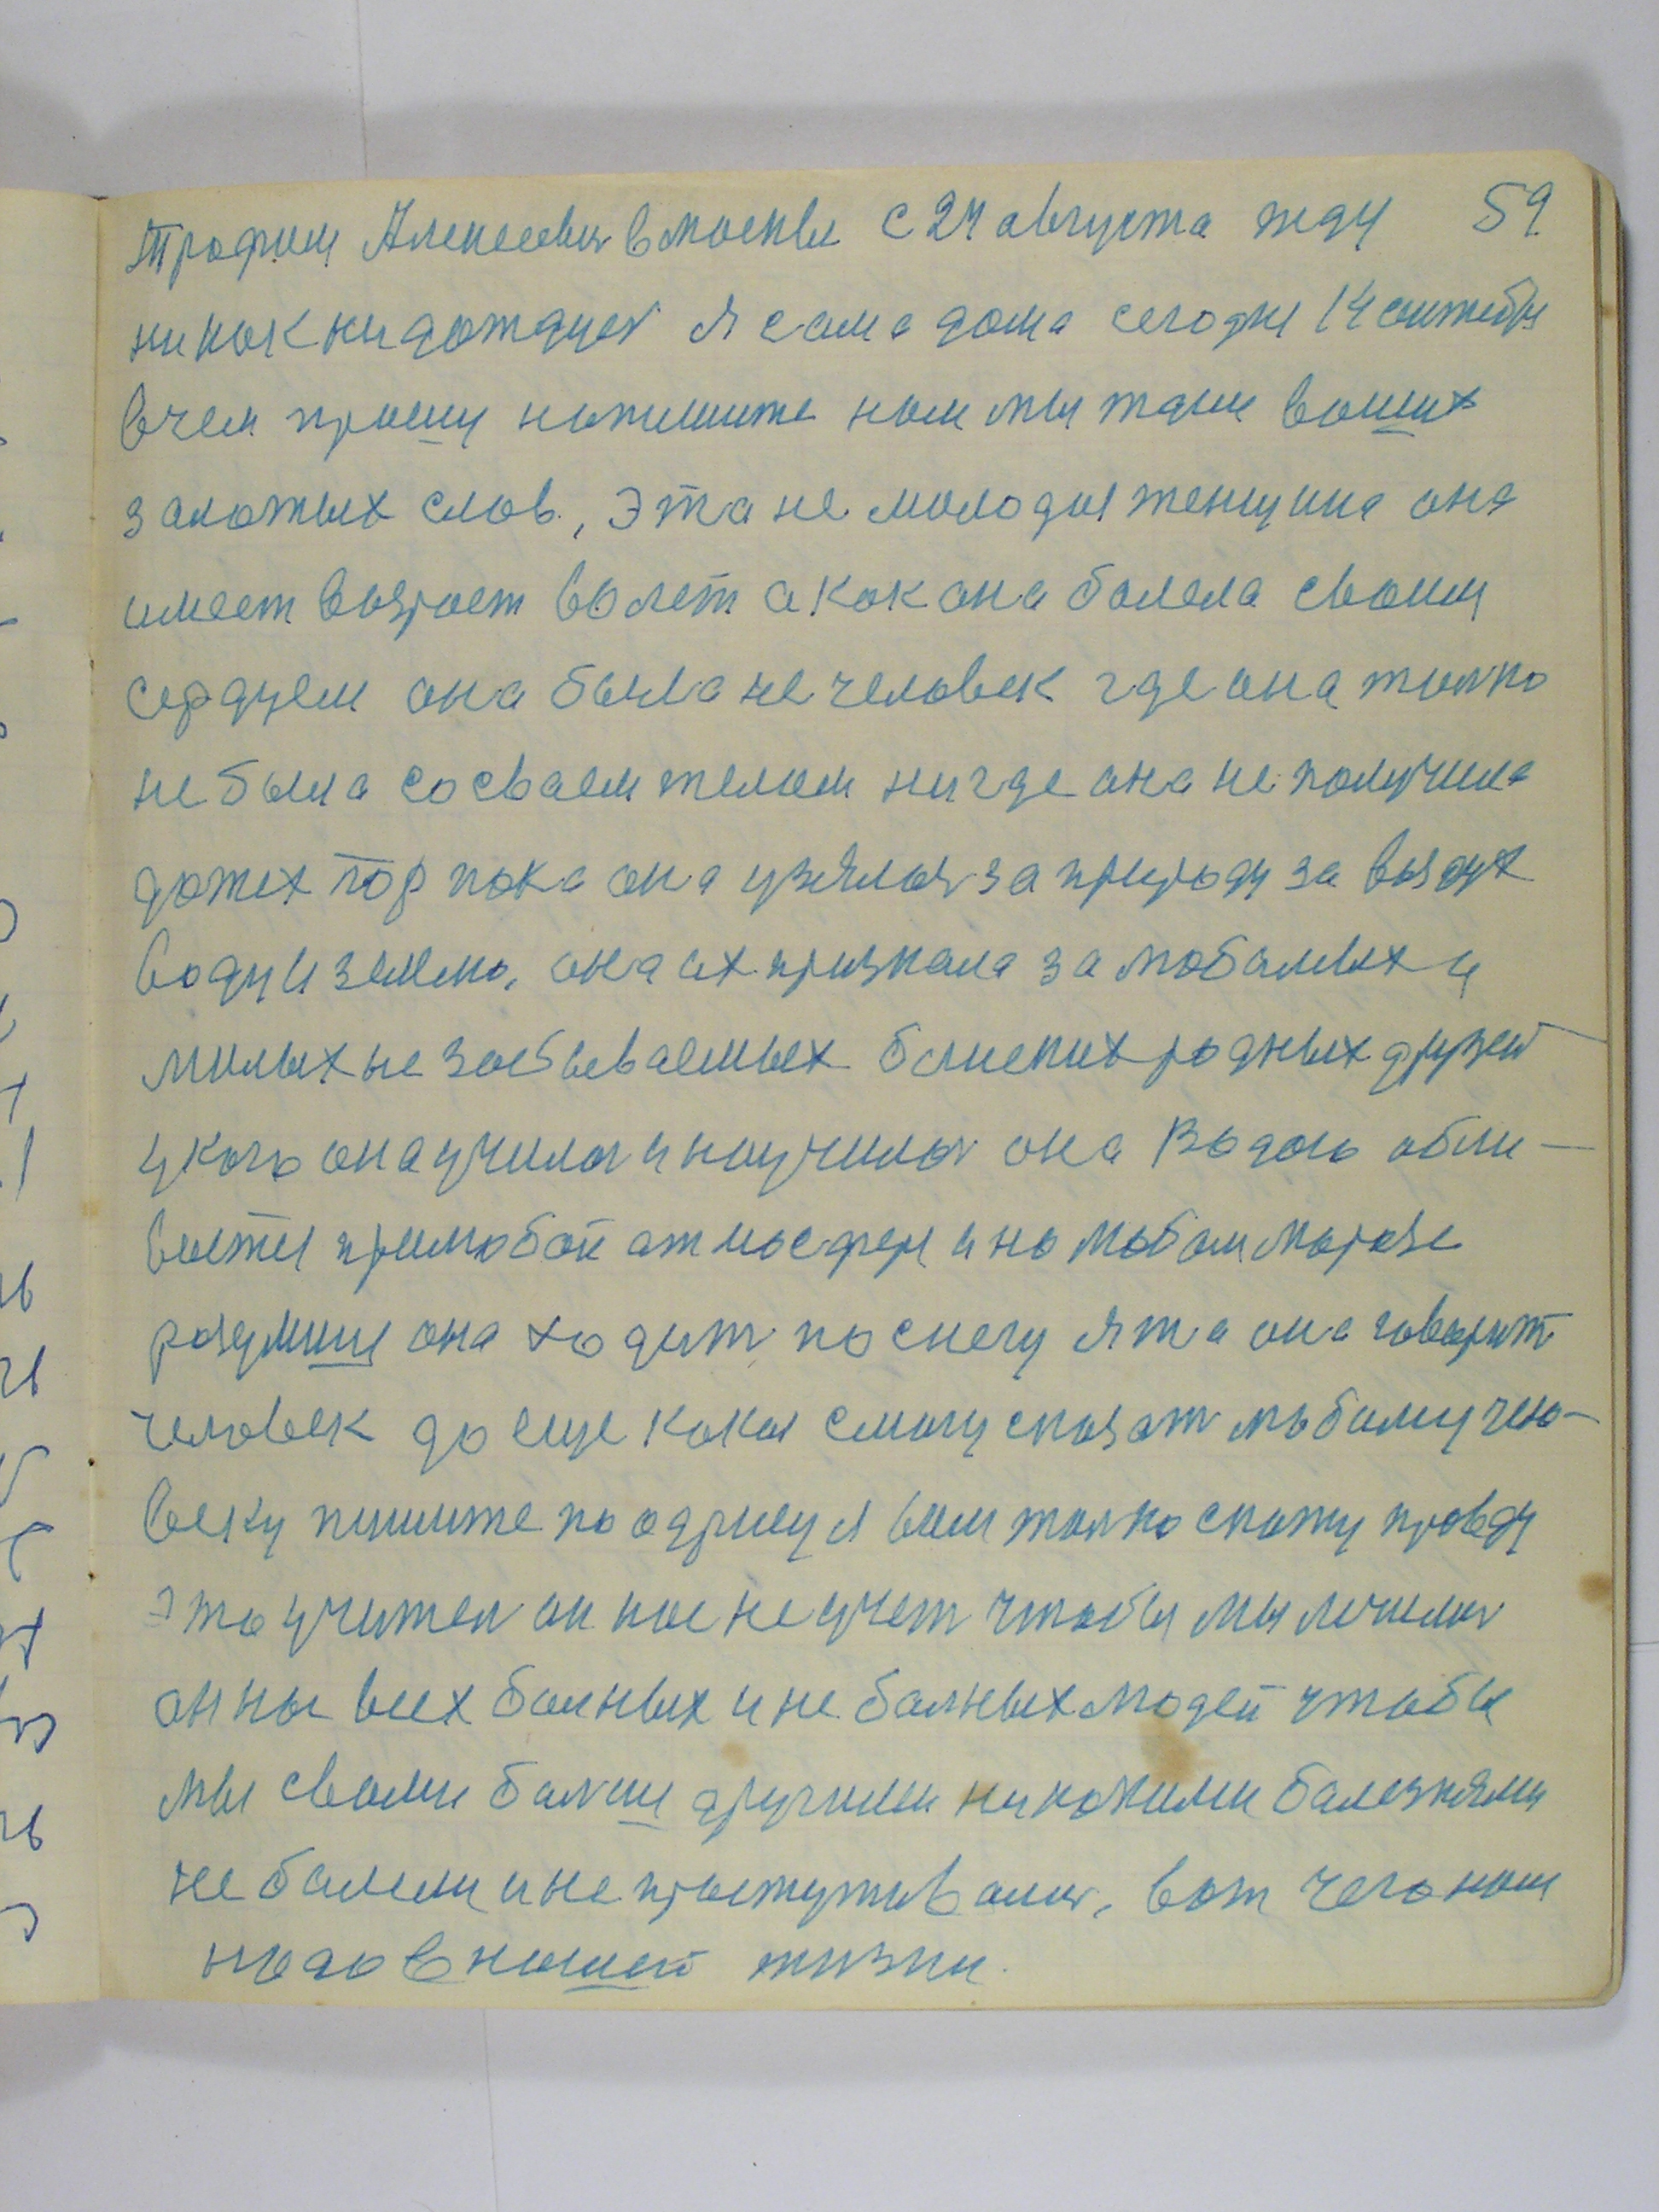 Трофим Алексеевич в москве С 24 августа жду 59
ни как ни дождус я сама дома сегодне 14 сентября
в чем прошу напишите нам мы ждем ваших
заложых слов, Эта не молодыя женщина она
имеет возрост 60 лет а как она болела своим
сердцем она была не человек где она толко
не была со сваем телом нигде она не получила
до тех пор пока она узялас за природу за воздух
воду и землю, она их признала за любимых и
милых не забываемых близких родных друзей
у кого она училас и научилас она Водою обли-
вается при любой атмосфери и на любом морозе
разумши она ходит по снегу я та она говорит
человек да еще какой смогу сказат любому чело-
веку пишите по адрису я вам толко скажу правду
это учител он нас не учет чтобы мы лечилис
он нас всех болных и не болных людей чтобы
мы своими болши другими никокими болезнями
не болели и не простужывалис, вот чего нам
надо в нашей жизни.